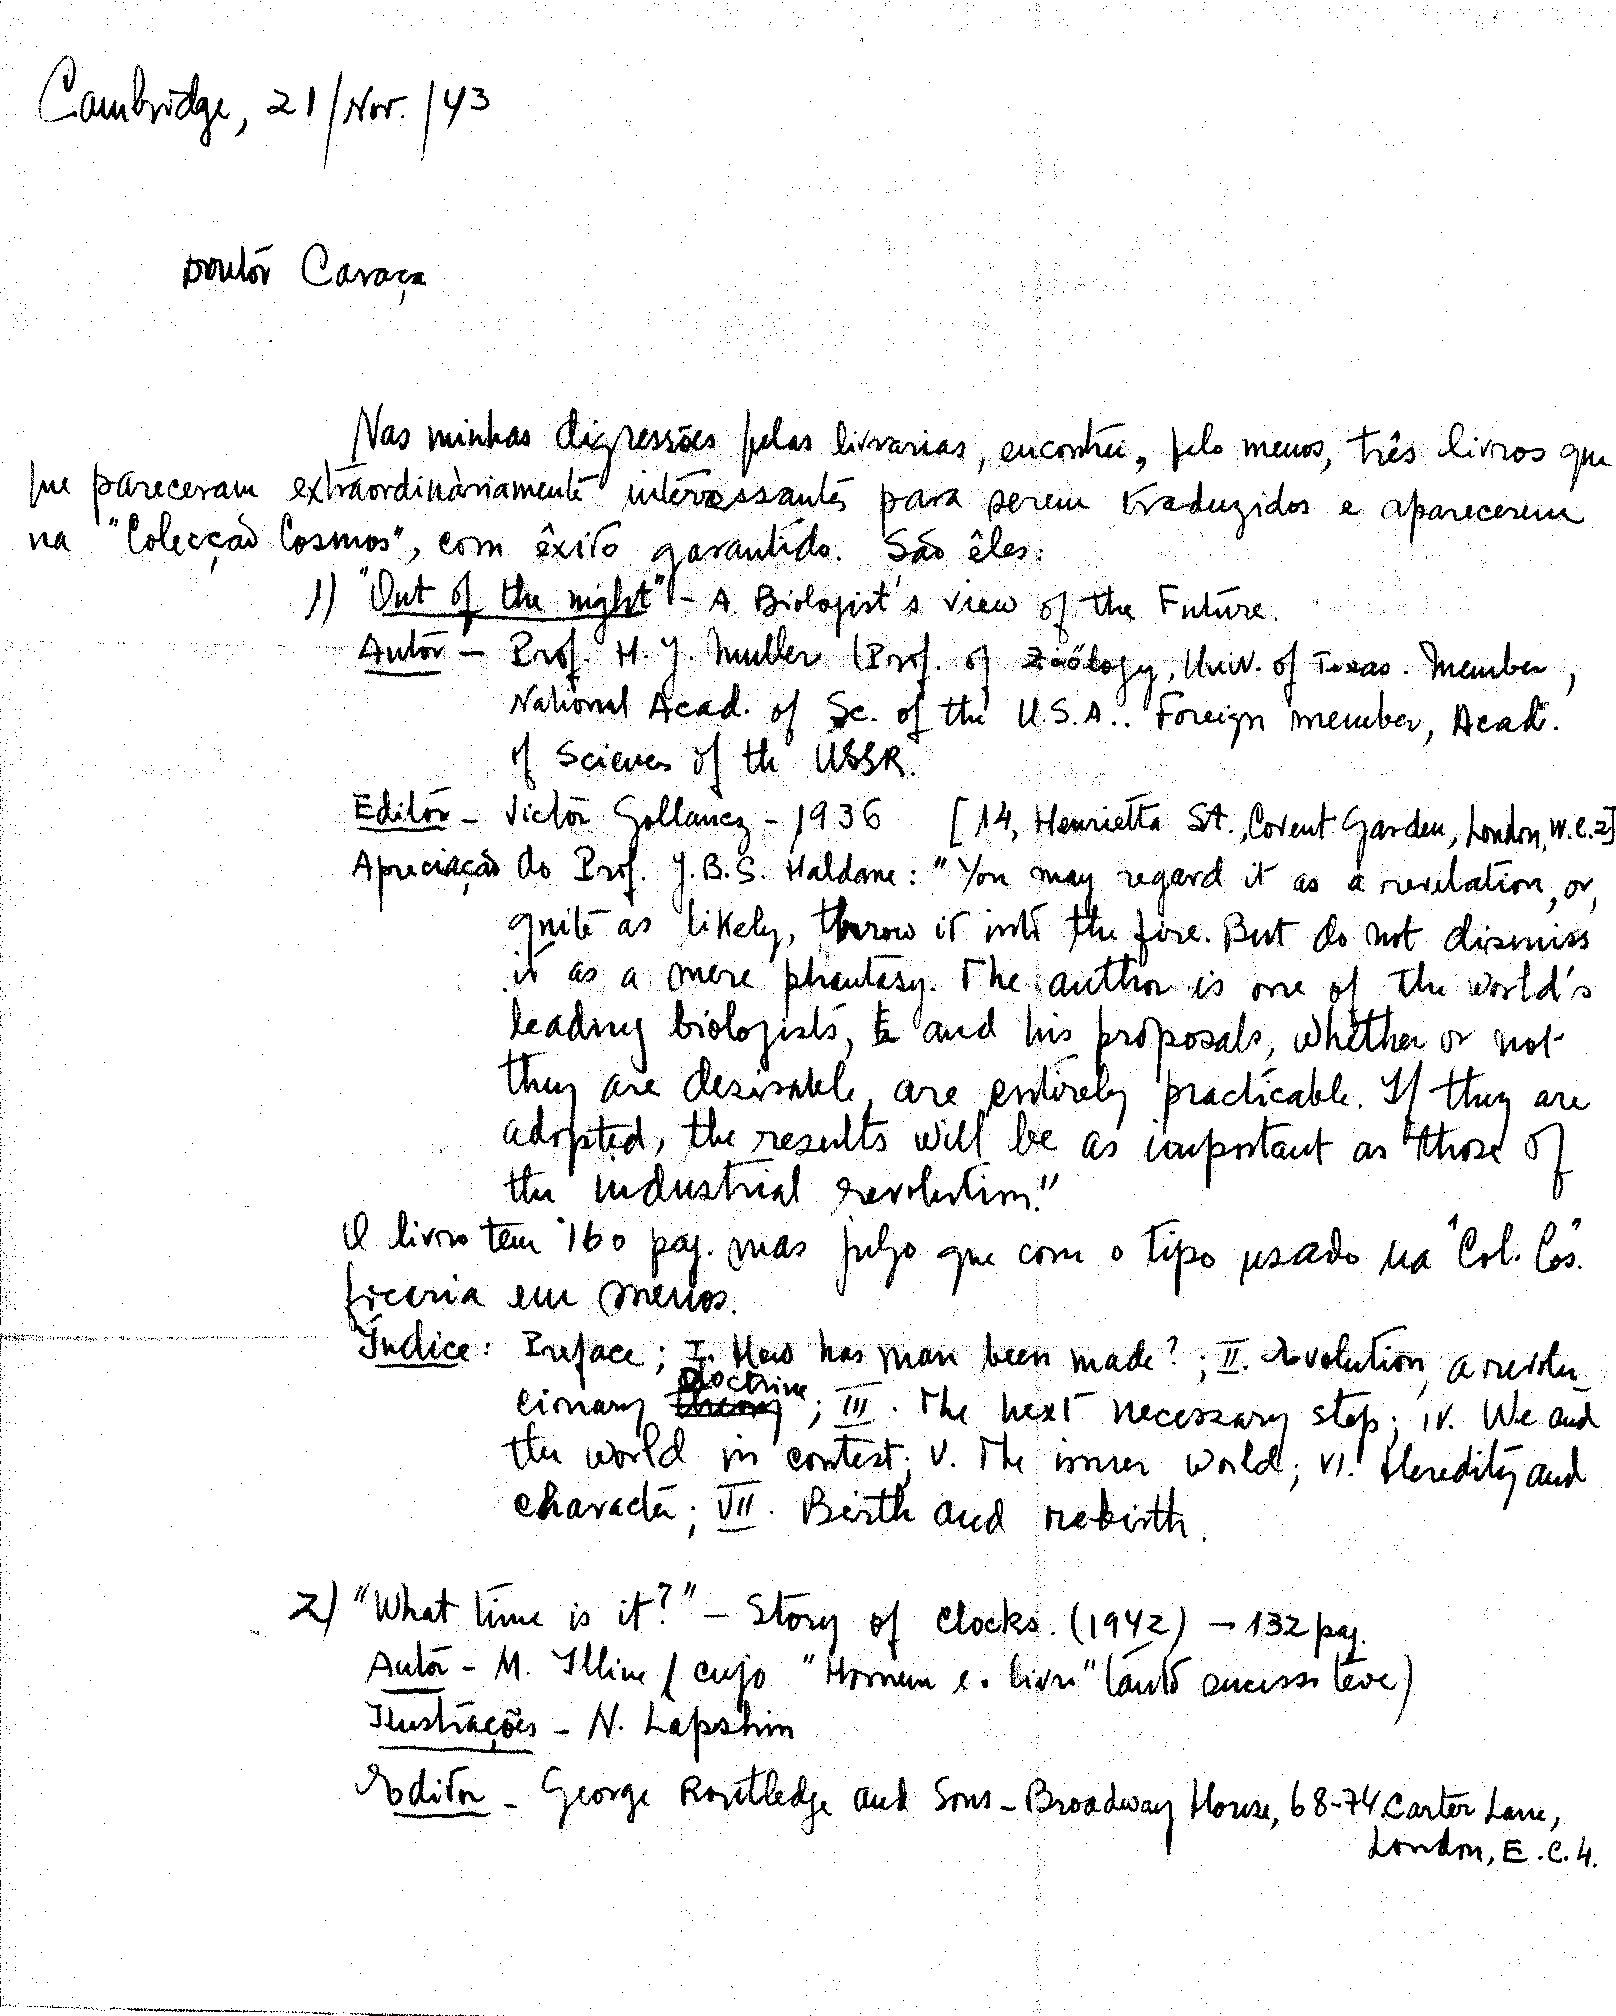 Cambridge, 21/Nov./43
Doutor Caraça
Nas minhas digressões pelas livrarias, encontrei, pelo menos, três livros que
me pareceram extraordinàriamente interessantes para serem traduzidos e aparecerem
na "Colecção Cosmos", com êxito garantido. São êles:
1) "Out of the night" - A Biologist's view of the Future.
Autor - Prof. H. J. Muller (Prof. of Zoölogy, Univ. of Texas. Member,
National Acad. of Sc. of the U.S.A.. Foreign member, Acad.
of Sciences of the USSR.
Editor - Victor Gollancz - 1936 [14, Henrietta St., Covent Garden, London, W.C.2]
Apreciação do Prof. J.B.S. Haldane: "You may regard it as a revelation, or,
quite as likely, throw it into the fire. But do not dismiss
it as a mere phantasy. The author is one of the world's
leading biologists, and his proposals, whether or not
they are desirable, are entirely practicable. If they are
adopted, the results will be as important as those of
the industrial revolution."
O livro tem 160 pag. mas julgo que com o tipo usado na "Col. Cos."
ficaria em menos.
Índice: Preface; I. How has man been made?; II. Revolution, a revolu
cionary theory doctrine; III. The next necessary step; IV. We and
the world in contest; V. The inner world; VI. Heredity and
character; VII. Birth and rebirth.
2) "What time is it?" - Story of clocks. (1942) - 132 pag.
Autor - M. Illine (cujo "Homem e o livro" tanto sucesso teve)
Ilustrações - N. Lapshin
Editor - George Routledge and Sons - Broadway House, 68-74 Carter Lane,
London, E.C.4.